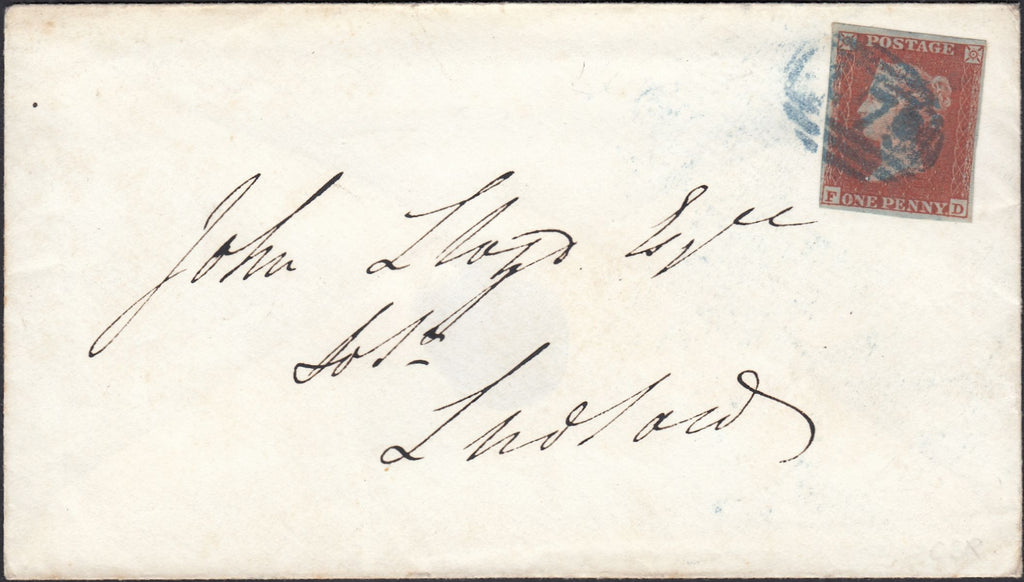 POSTAGE
7
F ONE PENNY D
John Lloyd Esqre
Solr
Ludlow